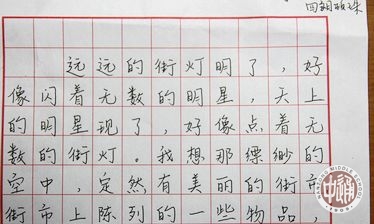 远远的街灯明了，好
像闪着无数的明星，天上
的明星现了，好像点着无
数的街灯。我想那缥缈的
空中，定然有美丽的街市
街市上陈列的一些物品，